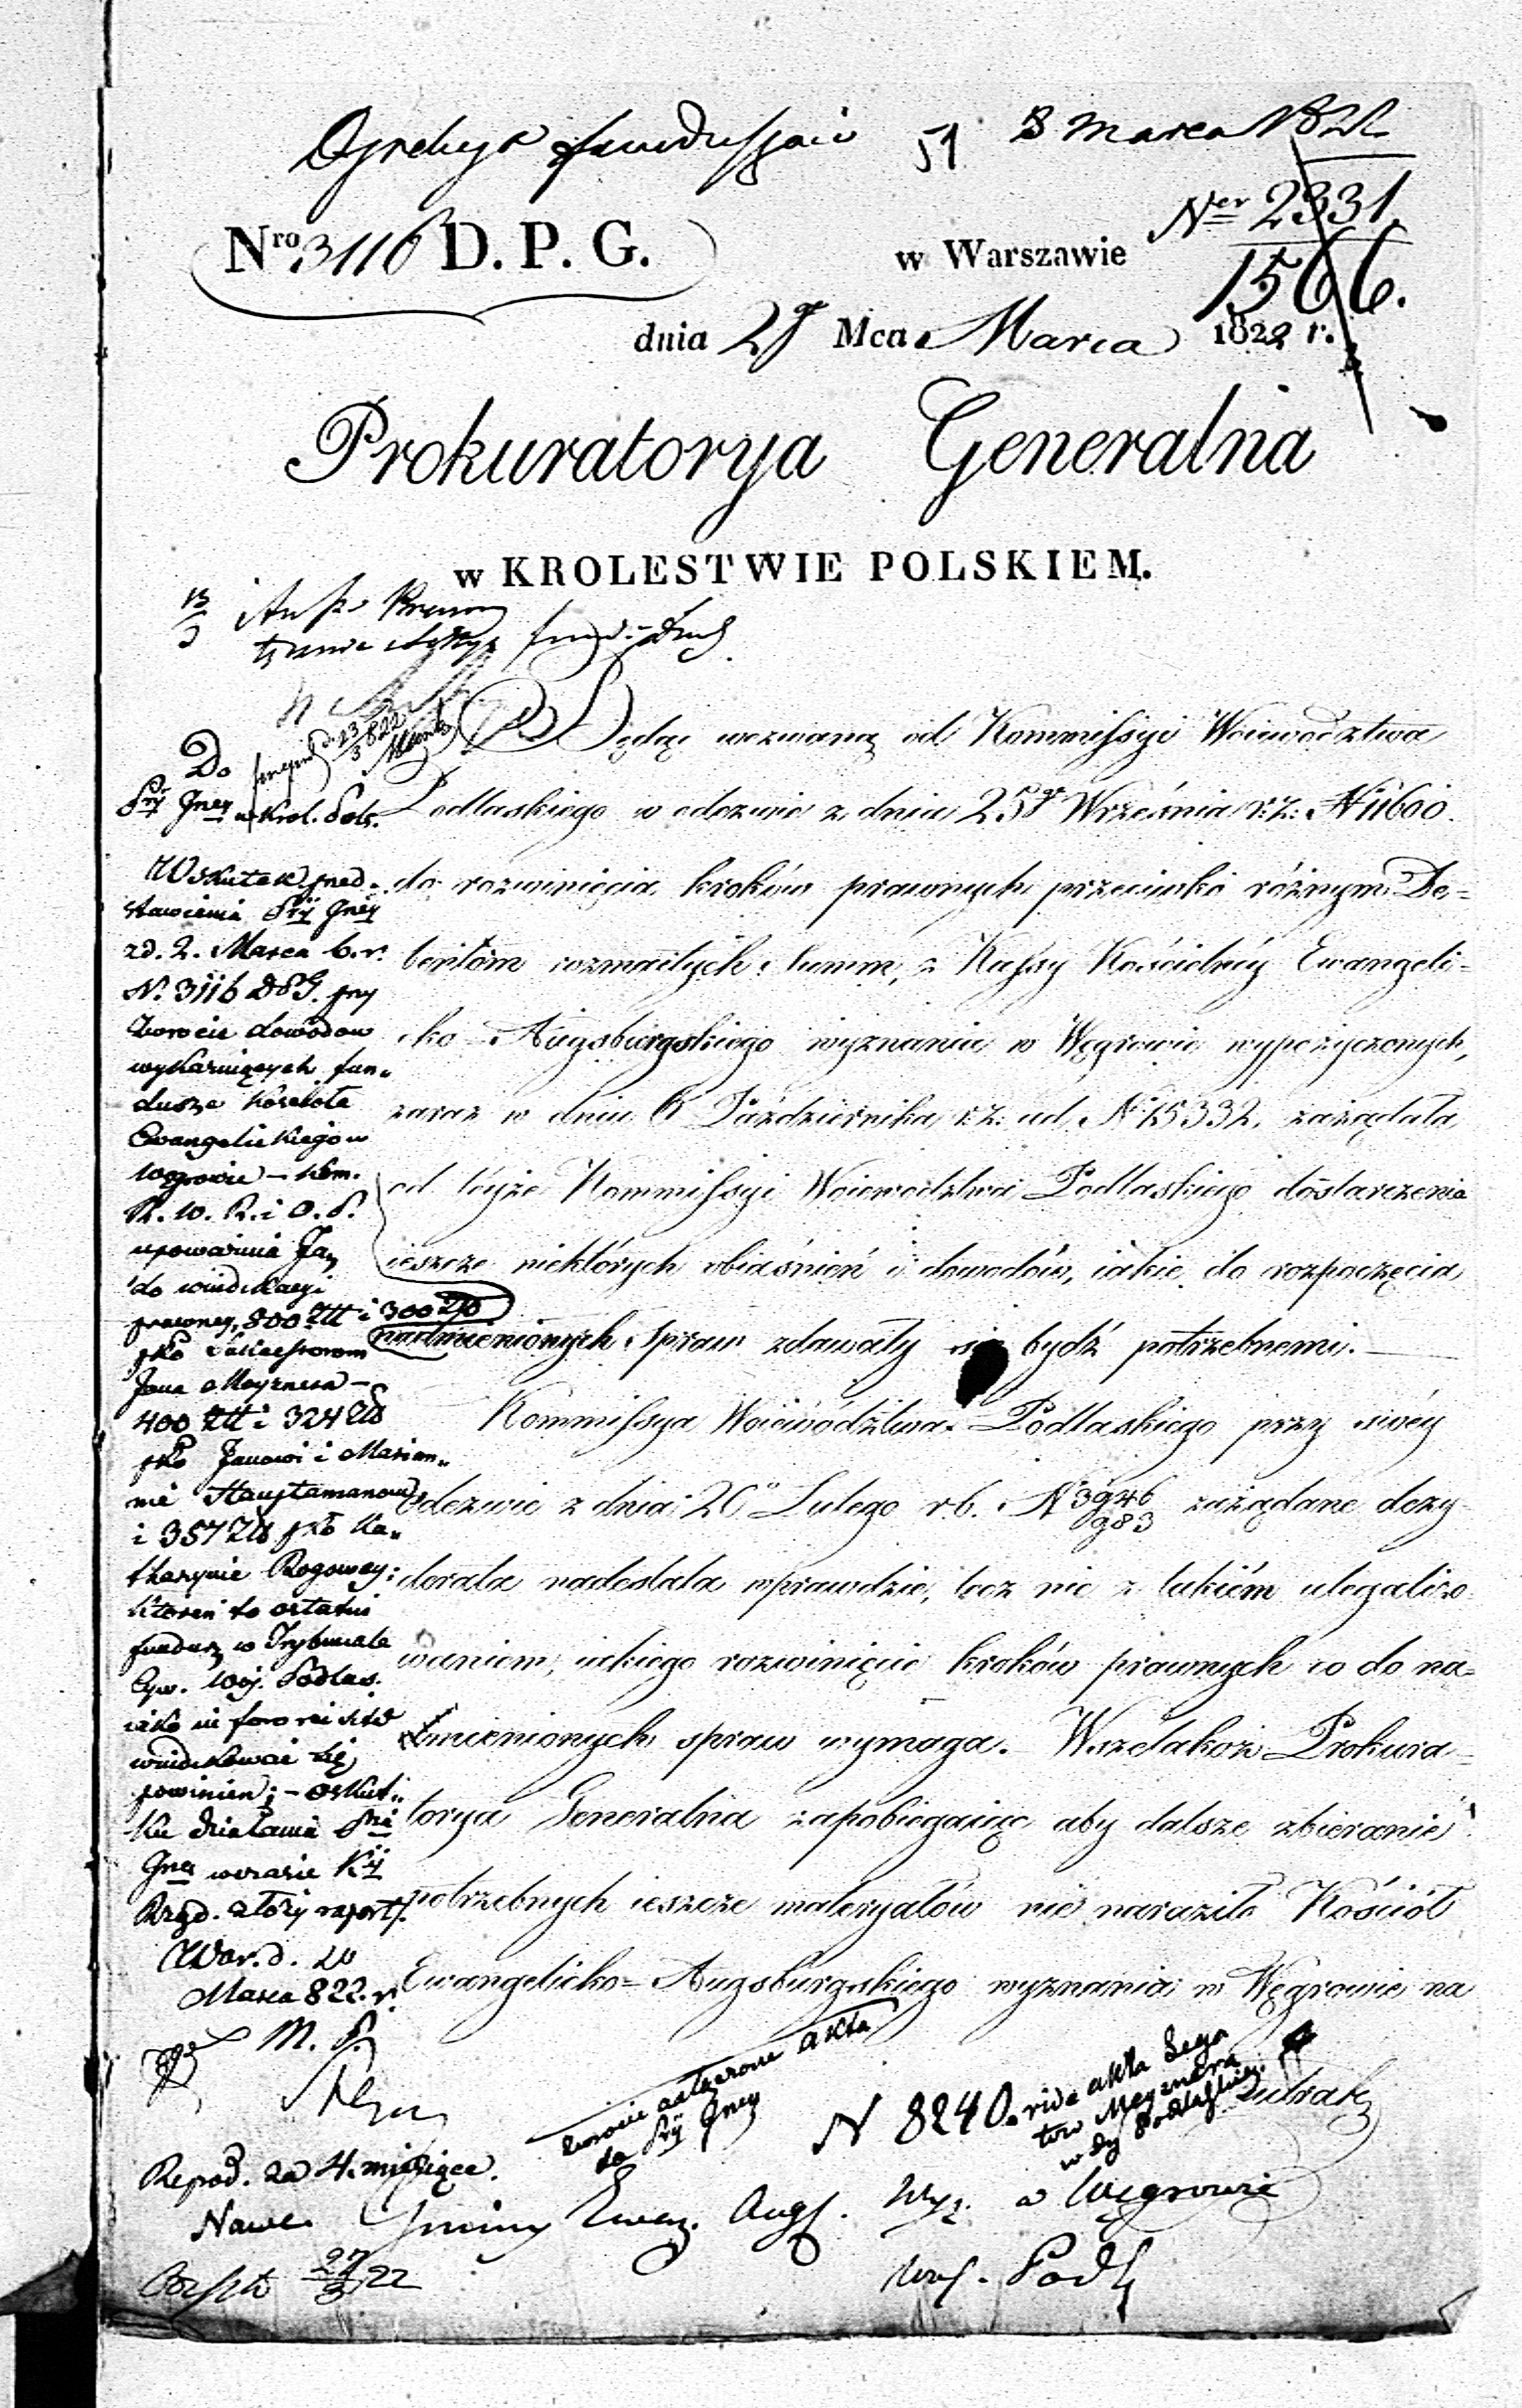 51 3 Marca 1822
Nro 3116 D. P. G.
w Warszawie
Ner 2331.
1566.
dnia 2go Mca Marca 1822 r.
Prokuratorya Generalna
w KROLESTWIE POLSKIEM.
Będąc wezwaną od Kommissyi Woiewództwa
Podlaskiego w odezwie z dnia 25go Września r: z: N 11600.
do rozwinięcia kroków prawnych przeciwko różnym De-
bentom rozmaitych summ, z Kassy Kościelnéy Ewangeli-
cko-Augsburgskiego wyznania w Węgrowie wypożyczonych,
zaraz w dniu 6 Października r: z: ad N 15332. zażądała
od téyże Kommissyi Woiewództwa Podlaskiego dostarczenia
ieszcze niektórych obiaśnień i dowodów, iakie do rozpoczęcia
nadmienionych spraw zdawały się bydź potrzebnemi.
Kommissya Woiewództwa Podlaskiego przy swéy
odezwie z dnia 20o Lutego r. b. N 3946/983 zażądane dezy-
derata nadesłała wprawdzie, lecz nie z takiém ulegalizo-
waniem, iakiego rozwinięcie kroków prawnych co do na-
dmienionych spraw wymaga. Wszelakoż Prokura-
torya Generalna zapobiegaiąc aby dalsze zbieranie
potrzebnych ieszcze materyałów nie naraziło Kościół
Ewangelicko-Augsburgskiego wyznania w Węgrowie na
utratę
Do
Pryi Gney w Krol. Pols.
Wskutek przed-
stawienia Pryi Gney
z d. 2. Marca b. r.
N. 3116 DPG. przy
zwrocie dowodow
wykazuiących fun-
dusze kościoła
Ewangelickiego w
Węgrowie – Kom.
R. W. R. i O. P.
upoważnia Ją
do windykacyi
prawney, 800 Złt i 300 Złt
pko Sukcessorom
Jana Meyznera –
400 Złt i 324 Złt
pko Janowi i Marian-
nie
i 357 Złt pko Ka-
tharzynie Rogowey;
któren to ostatni
fundusz w Trybunale
Cyw. Woj. Podlas.
iako in foro rei sitae
windykować się
powinien; – o skut-
ku działania Pria
Gna w czasie Kyi
Rząd. złoży raport.
War. d. 20
Marca 822. r.
M. P.
zwrócić załączone akta
do Pryi Gney
N 8240. vide akta Lega
tow Meyznera
Repod. za 4. miesiące.
Gminy Ewan. Augs. Wyz. w Węgrowie
Woj. Podl
27/3 22